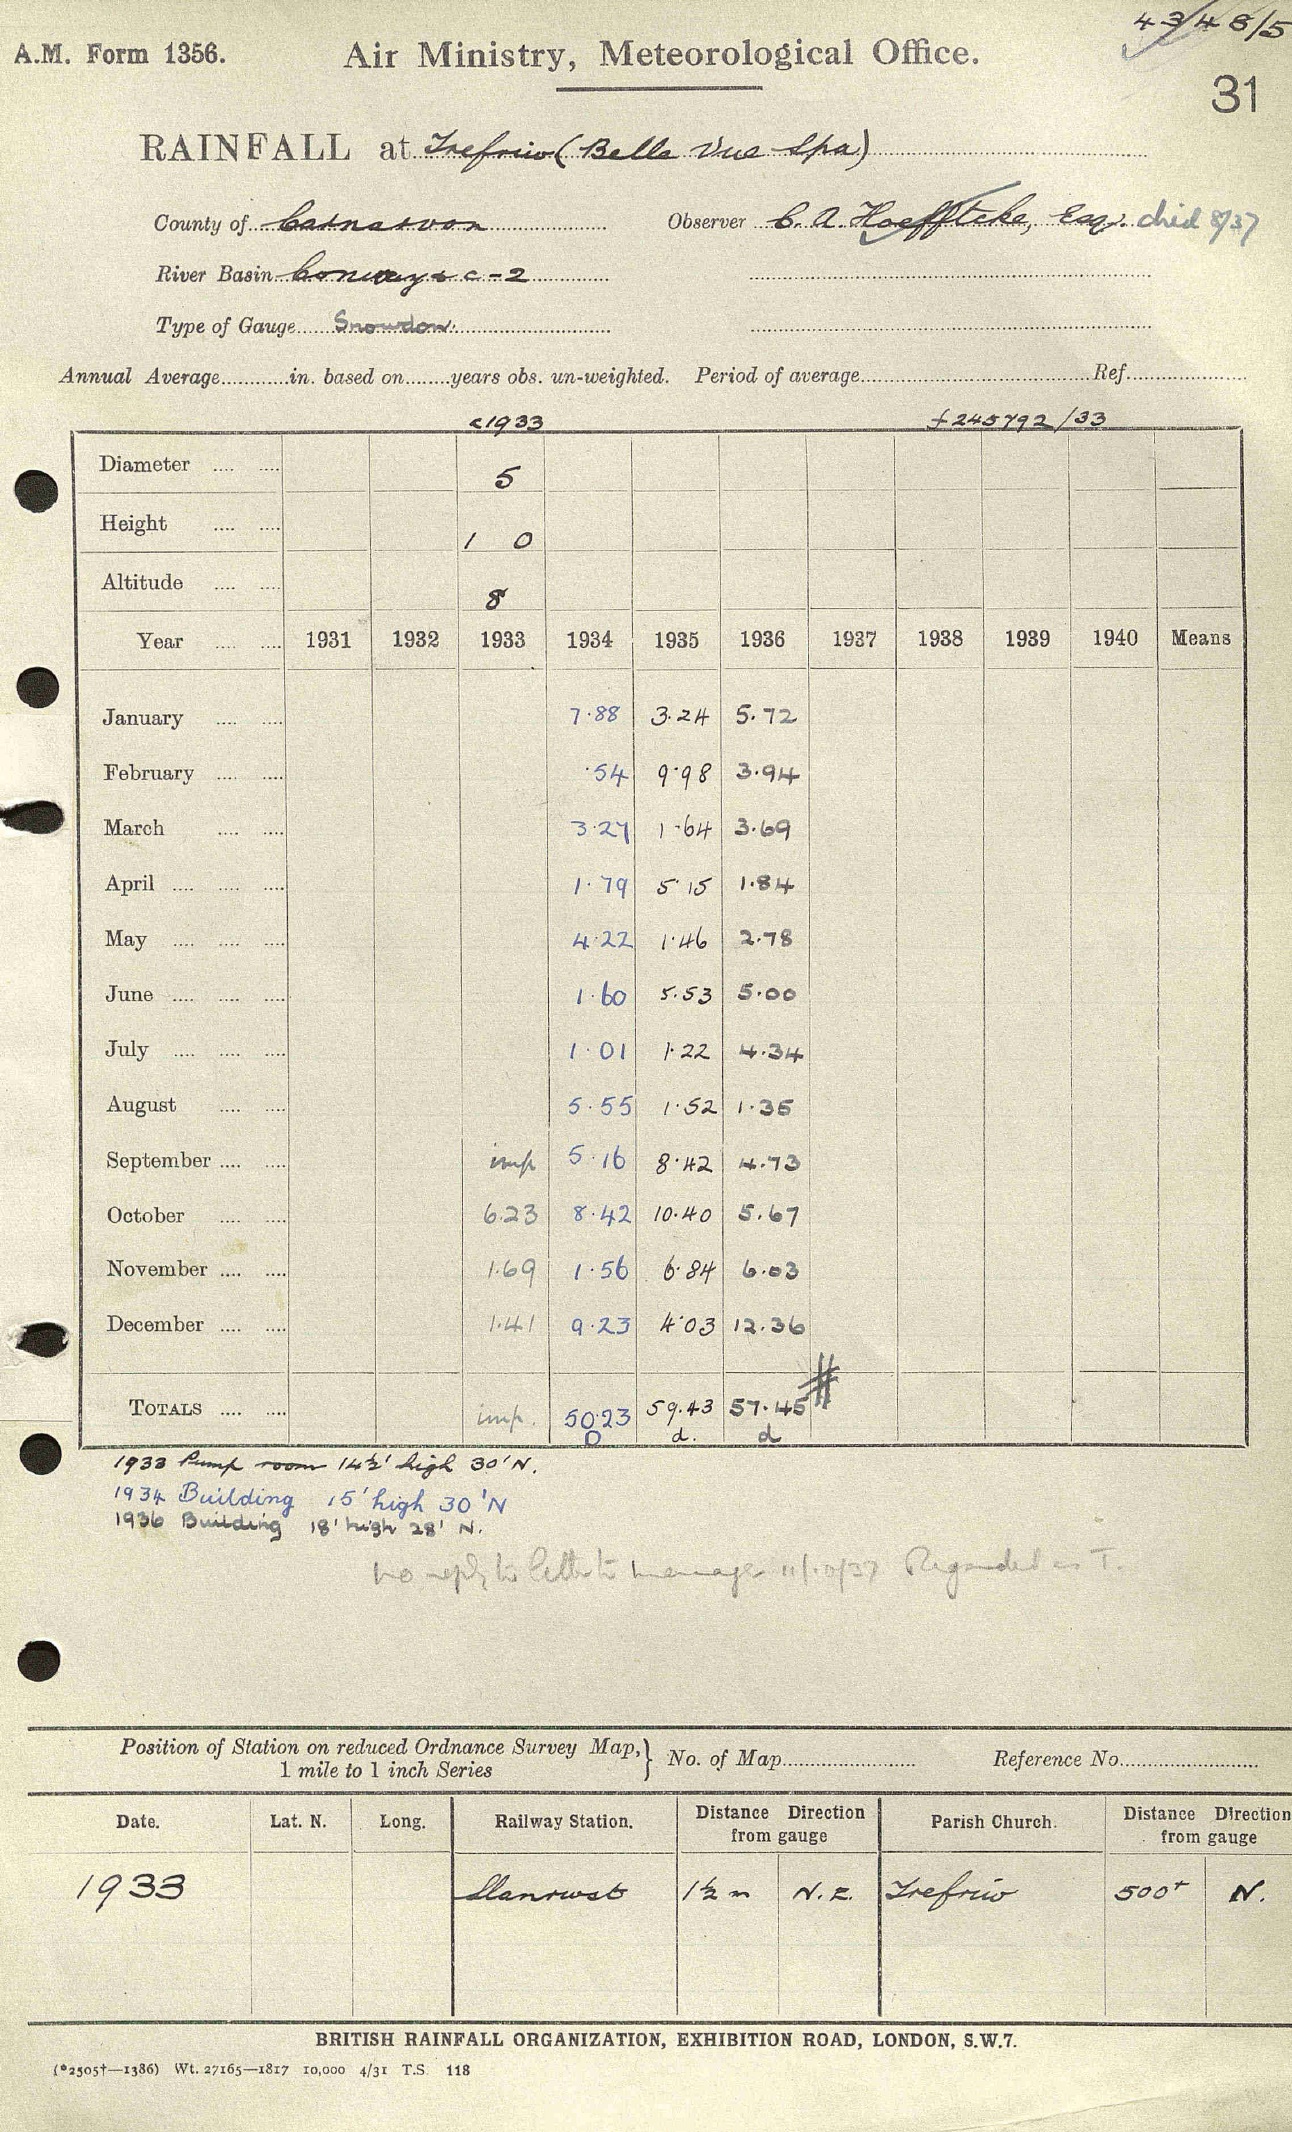 4348/5
A.M. Form 1356. Air Ministry, Meteorological Office.
31
RAINFALL at Trefriw (Belle Vue Spa)
County of Carnarvon Observer C. A. Hoefftcke, Esq. died 8/37
River Basin Conway & C-2
Type of Gauge Snowdon.
Annual Average............in. based on........years obs. un-weighted. Period of average........................................Ref.....................
<1933 £245792/33
Diameter .... .... 5
Height .... .... 1 0
Altitude .... .... 8
Year .... .... 1931 1932 1933 1934 1935 1936 1937 1938 1939 1940 Means
January .... .... 7.88 3.24 5.72
February .... .... .54 9.98 3.94
March .... .... 3.27 1.64 3.69
April .... .... .... 1.79 5.15 1.84
May .... .... .... 4.22 1.46 2.78
June .... .... .... 1.60 5.53 5.00
July .... .... .... 1.01 1.22 4.34
August .... .... 5.55 1.52 1.35
September .... .... imp 5.16 8.42 4.73
October .... .... 6.23 8.42 10.40 5.67
November .... .... 1.69 1.56 6.84 6.03
December .... .... 1.41 9.23 4.03 12.36
TOTALS .... .... imp. 50.23 59.43 57.45 #
D d. d
1933 Pump room 14½' high 30' N.
1934 Building 15' high 30' N
1936 Building 18' high 28' N.
No reply to letter to manager 11/10/37 Regarded as T.
Position of Station on reduced Ordnance Survey Map, } No. of Map........................ Reference No.........................
1 mile to 1 inch Series
Date. Lat. N. Long. Railway Station. Distance Direction from gauge Parish Church. Distance Direction from gauge
1933 Llanrwst 1½ m N.E. Trefriw 500+ N.
BRITISH RAINFALL ORGANIZATION, EXHIBITION ROAD, LONDON, S.W.7.
(*2505†—1386) Wt. 27165—1817 10,000 4/31 T.S. 118